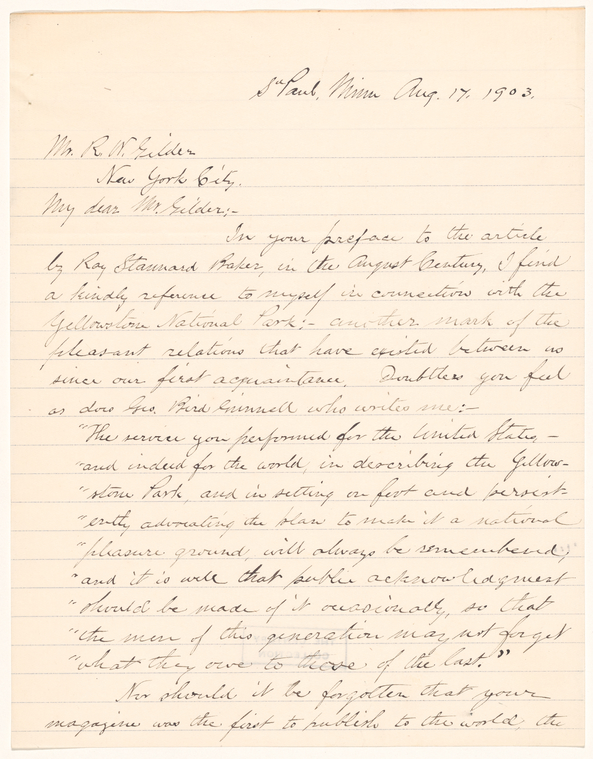 St Paul, Minn Aug. 17, 1903.
Mr. R. W. Gilder
New York City.
My dear Mr. Gilder;-
In your preface to the article
by Ray Stannard Baker, in the August Century, I find
a kindly reference to myself in connection with the
Yellowstone National Park;- another mark of the
pleasant relations that have existed between us
since our first acquaintance. Doubtless you feel
as does Geo. Bird Grinnell who writes me:-
"The service you performed for the United States, -
"and indeed for the world, in describing the Yellow-
"stone Park, and in setting on foot and persist-
"ently advocating the plan to make it a national
"pleasure ground, will always be remembered;
"and it is well that public acknowledgment
"should be made of it occasionally, so that
"the men of this generation may not forget
"what they owe to those of the last."
Nor should it be forgotten that your
magazine was the first to publish to the world, the